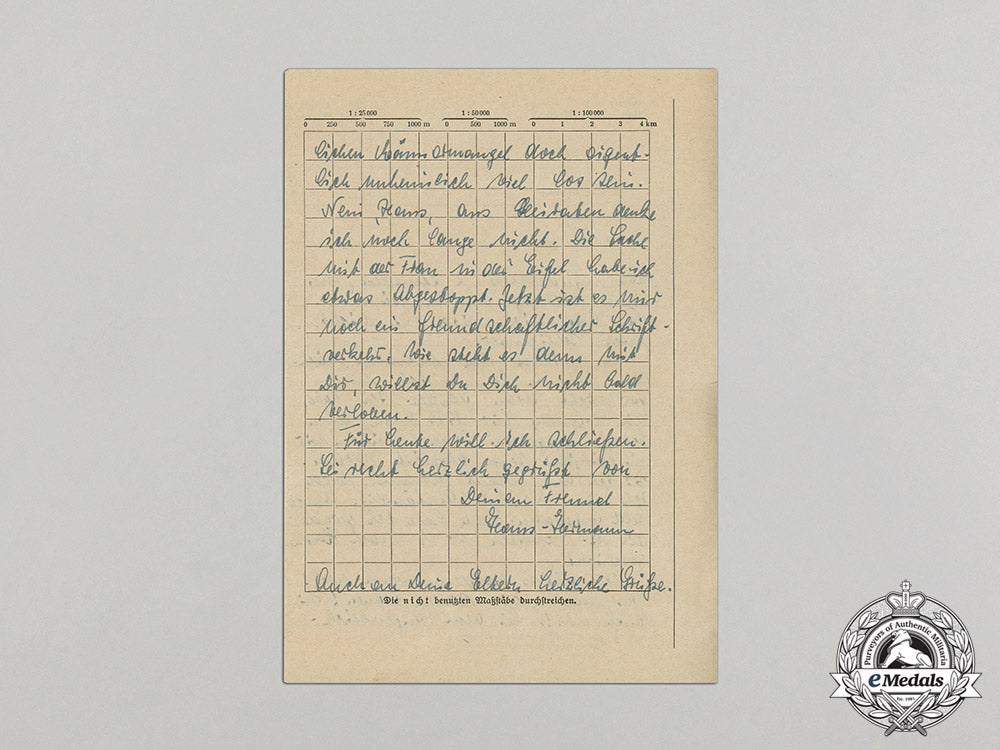 1 : 25 000 1 : 50 000 1 : 100 000
0 250 500 750 1000 m 0 500 1000 m 0 1 2 3 4 km
lichen Männermangel doch eigent-
lich unheimlich viel los sein.
Nein Hans, ans Heiraten denke
ich noch lange nicht. Die Sache
mit der Frau in der Eifel habe ich
etwas abgestoppt. Jetzt ist es nur
noch ein freundschaftlicher Schrift-
verkehr. Wie steht es denn mit
Dir, willst Du Dich nicht bald
verloben.
Für heute will ich schließen.
Sei recht herzlich gegrüßt von
Deinem Freund
Hans-Hermann
Auch an Deine Eltern herzliche Grüße.
Die nicht benutzten Maßstäbe durchstreichen.
Purveyors of Authentic Militaria
eMedals
Est. 1985